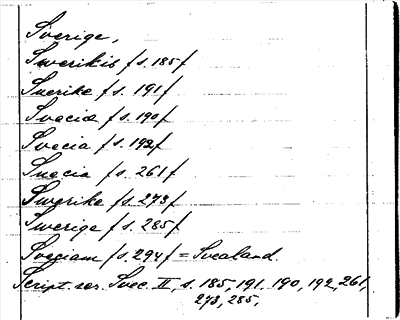 Sverige,
Swerikis /s. 185/
Suerike /s. 191/
Svecia /s. 190/
Svecia /s. 192/
Suecia /s. 261/
Swerike /s. 273/
Swerige /s. 285/
Sveciam /s. 294/ = Svealand.
Script. rer. Svec. II, s. 185, 191, 190, 192, 261,
273, 285,